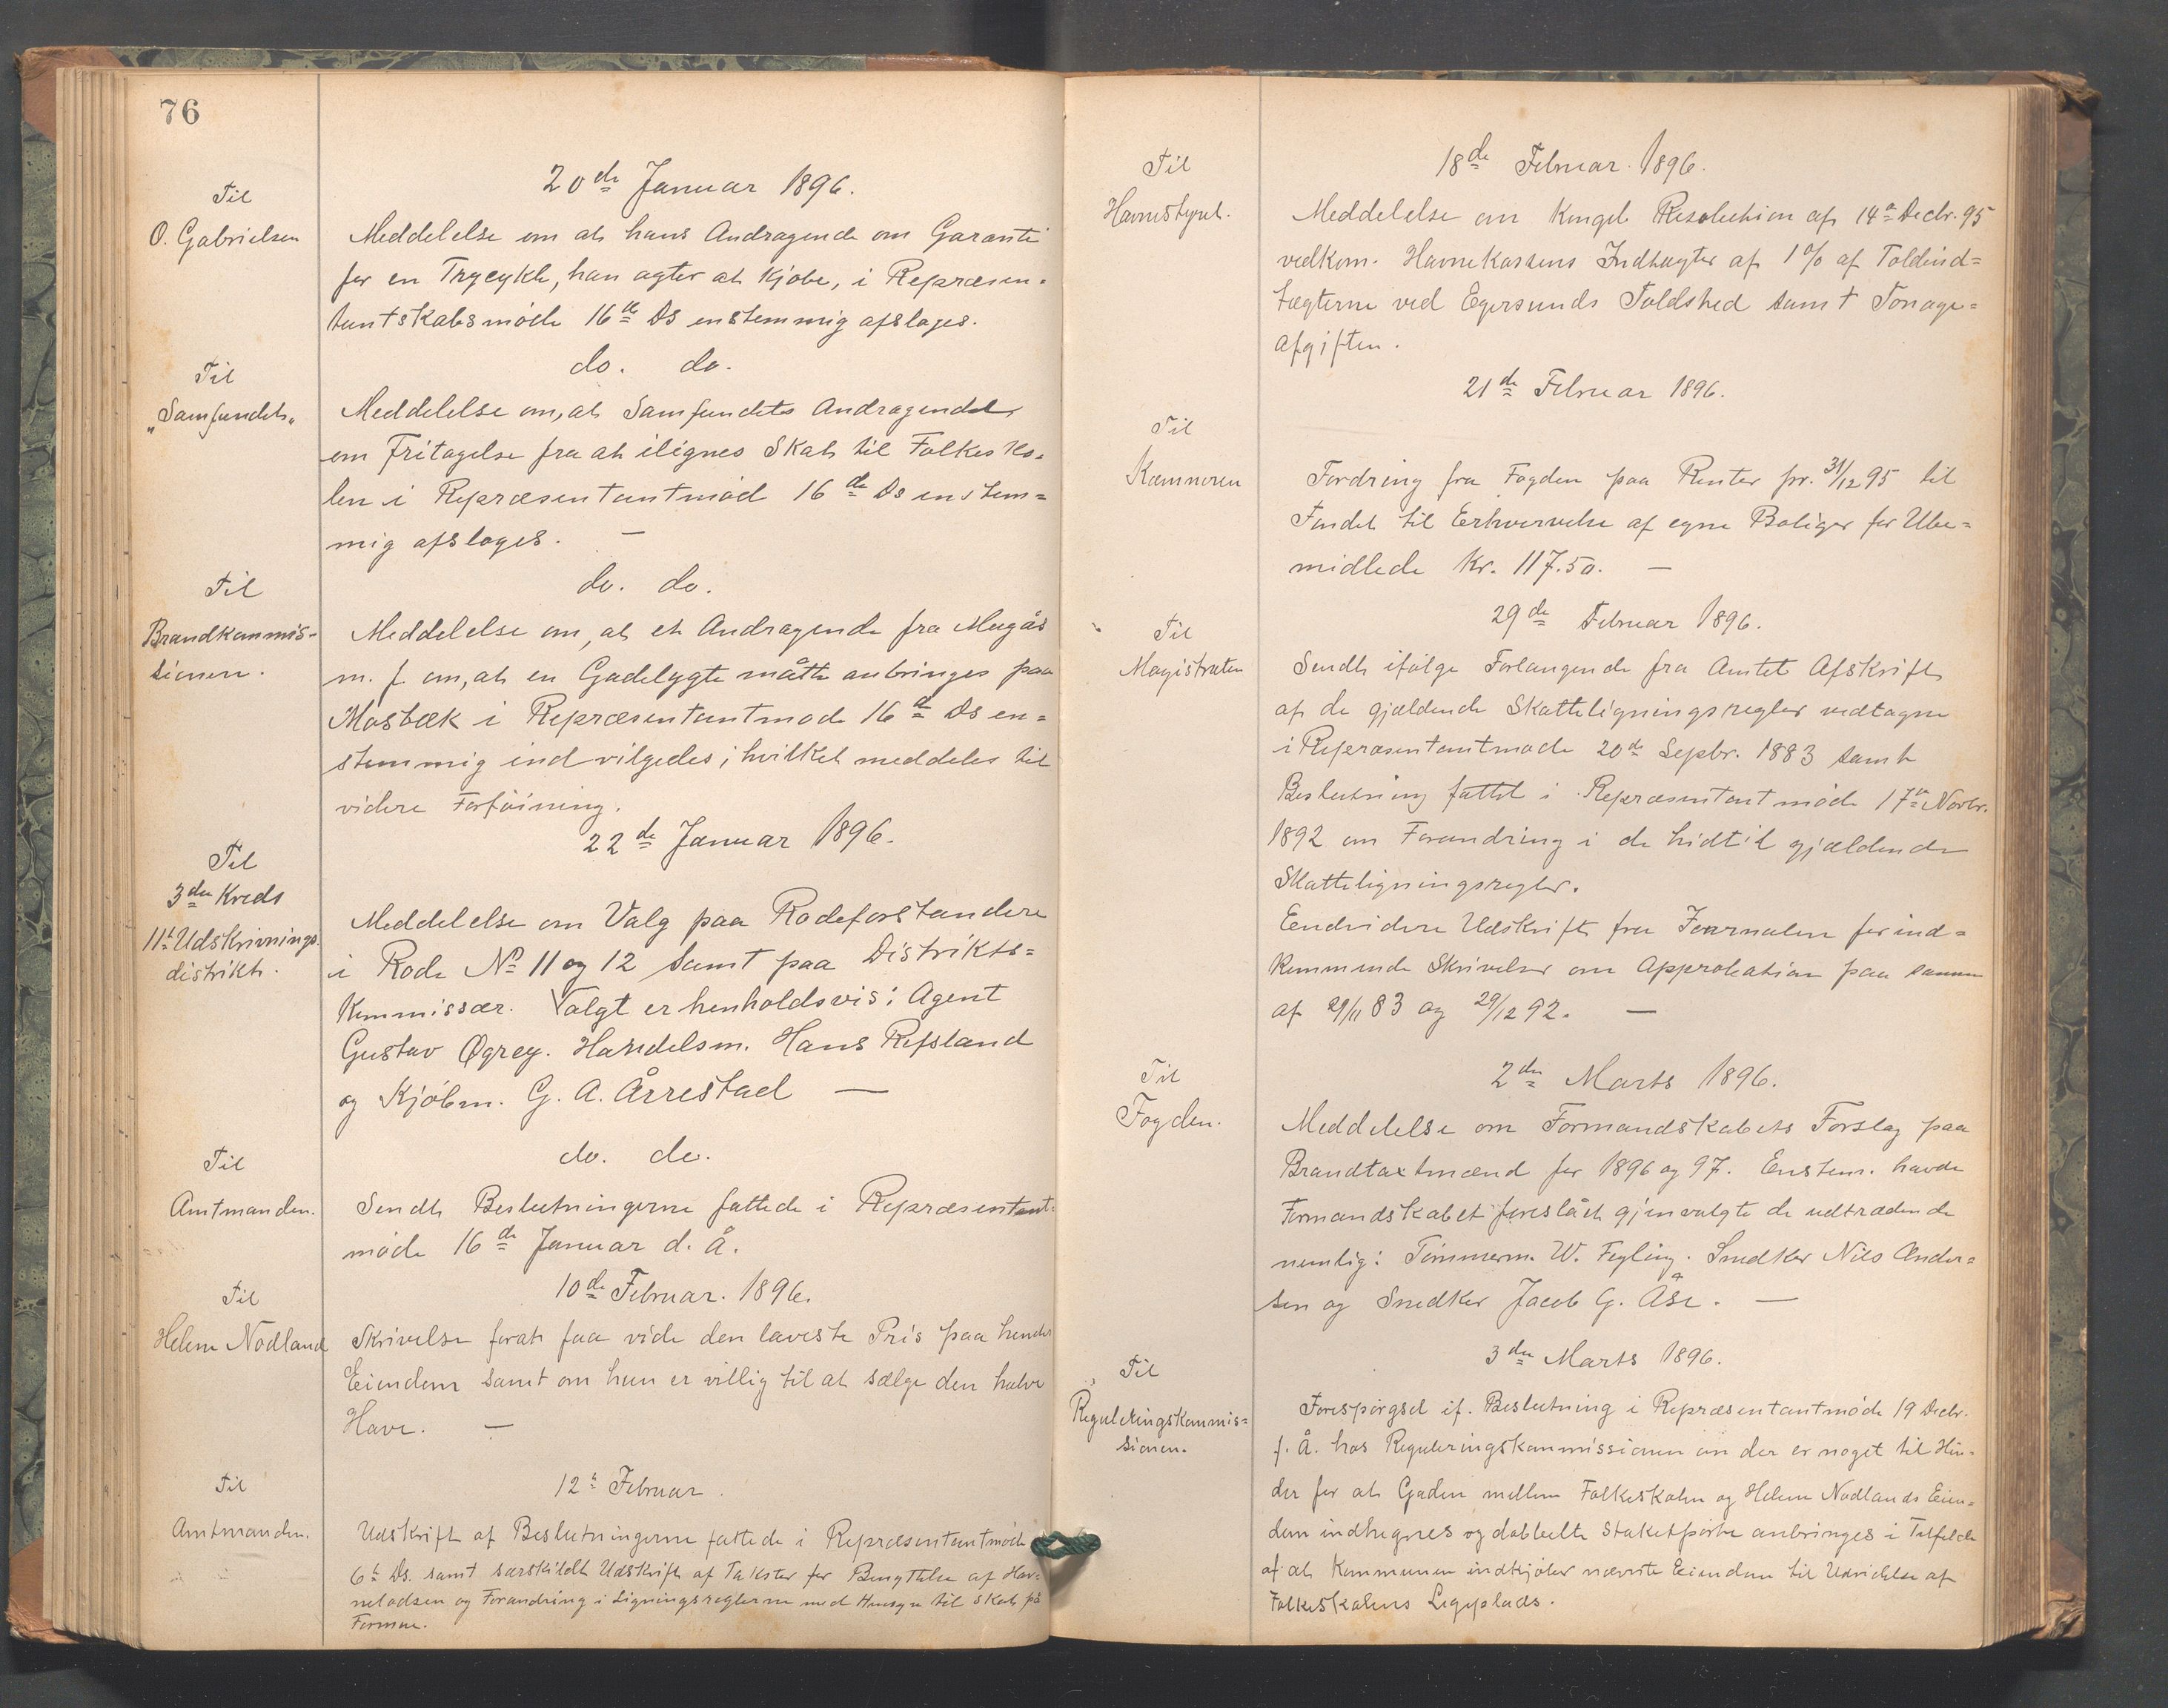 76
20de Januar 1896.
Til
O. Gabrielsen
Meddelelse om at hans Andragende om Garanti
for en Trycykle, han agter at kjøbe, i Repræsen-
tantskabsmöde 16de Ds enstemmig afsloges.
do. do.
Til
„Samfundet"
Meddelelse om, at Samfundets Andragende
om Fritagelse fra at ilignes Skat til Folkesko-
len i Repræsentantmöd 16de Ds enstem-
mig afsloges. —
do. do.
Til
Brandkommis-
sionen.
Meddelelse om, at et Andragende fra
m. fl. om, at en Gadelygte måtte anbringes paa
Mosbæk i Repræsentantmöde 16de Ds en-
stemmig indvilgedes, hvilket meddeles til
videre Forföining.
22de Januar 1896.
Til
3die Kreds
11te Udskrivnings-
distrikt.
Meddelelse om Valg paa Rodeforstandere
i Rode No 11 og 12 samt paa Distrikts-
kommissær. Valgt er henholdsvis: Agent
Gustav Øgrey. Handelsm. Hans Refsland
og Kjöbm. G. A. Årrestad —
do. do.
Til
Amtmanden.
Sendt Beslutningerne fattede i Repræsentant-
möde 16de Januar d. Å.
10de Februar. 1896.
Til
Helene Nodland
Skrivelse forat faa vide den laveste Pris paa hendes
Eiendom samt om hun er villig til at sælge den halve
Have. —
12te Februar.
Til
Amtmanden.
Udskrift af Beslutningerne fattede i Repræsentantmöde
6te Ds. samt særskildt Udskrift af Takster for Benyttelse af Hav-
nelodsen og Forandring i Ligningsreglerne med Hensyn til Skat på
Formue.
18de Februar. 1896.
Til
Havnestyret.
Meddelelse om Kongel. Resolution af 14de Decbr. 95
vedkom. Havnekassens Indtægter af 1% af Toldind-
tægterne ved Egersunds Toldsted samt Tonage-
afgiften.
21de Februar 1896.
Til
Kæmneren
Fordring fra Fogden paa Renter pr. 31/12 95 til
Fondet til Erhvervelse af egne Boliger for Ube-
midlede Kr. 117.50. —
29de Februar 1896.
Til
Magistraten
Sendt ifölge Forlangende fra Amtet Afskrift
af de gjældende Skatteligningsregler vedtagne
i Repræsentantmöde 20de Septbr. 1883 samt
Beslutning fattet i Repræsentantmöde 17de Novbr.
1892 om Forandring i de hidtil gjældende
Skatteligningsregler.
Endvidere Udskrift fra Journalen for ind-
kommende Skrivelser om Approbation paa samme
af 29/11 83 og 29/12 92. —
2den Marts 1896.
Til
Fogden.
Meddelelse om Formandskabets Forslag paa
Brandtaxtmænd for 1896 og 97. Enstem. havde
Formandskabet foreslået gjenvalgte de udtrædende
nemlig: Tömmerm. W. Fegling. Snedker Nils Ander-
sen og Snedker Jacob G. Åse. —
3die Marts 1896.
Til
Reguleringskommis-
sionen.
Forespörgsel if. Beslutning i Repræsentantmöde 19 Decbr.
f. Å. hos Reguleringskommissionen om der er noget til Hin-
der for at Gaden mellem Folkeskolen og Helene Nodlands Eien-
dom indhegnes og dobbelte Staketporte anbringes i Tilfælde
af at Kommunen indkjöber nævnte Eiendom til Udvidelse af
Folkeskolens Legeplads.